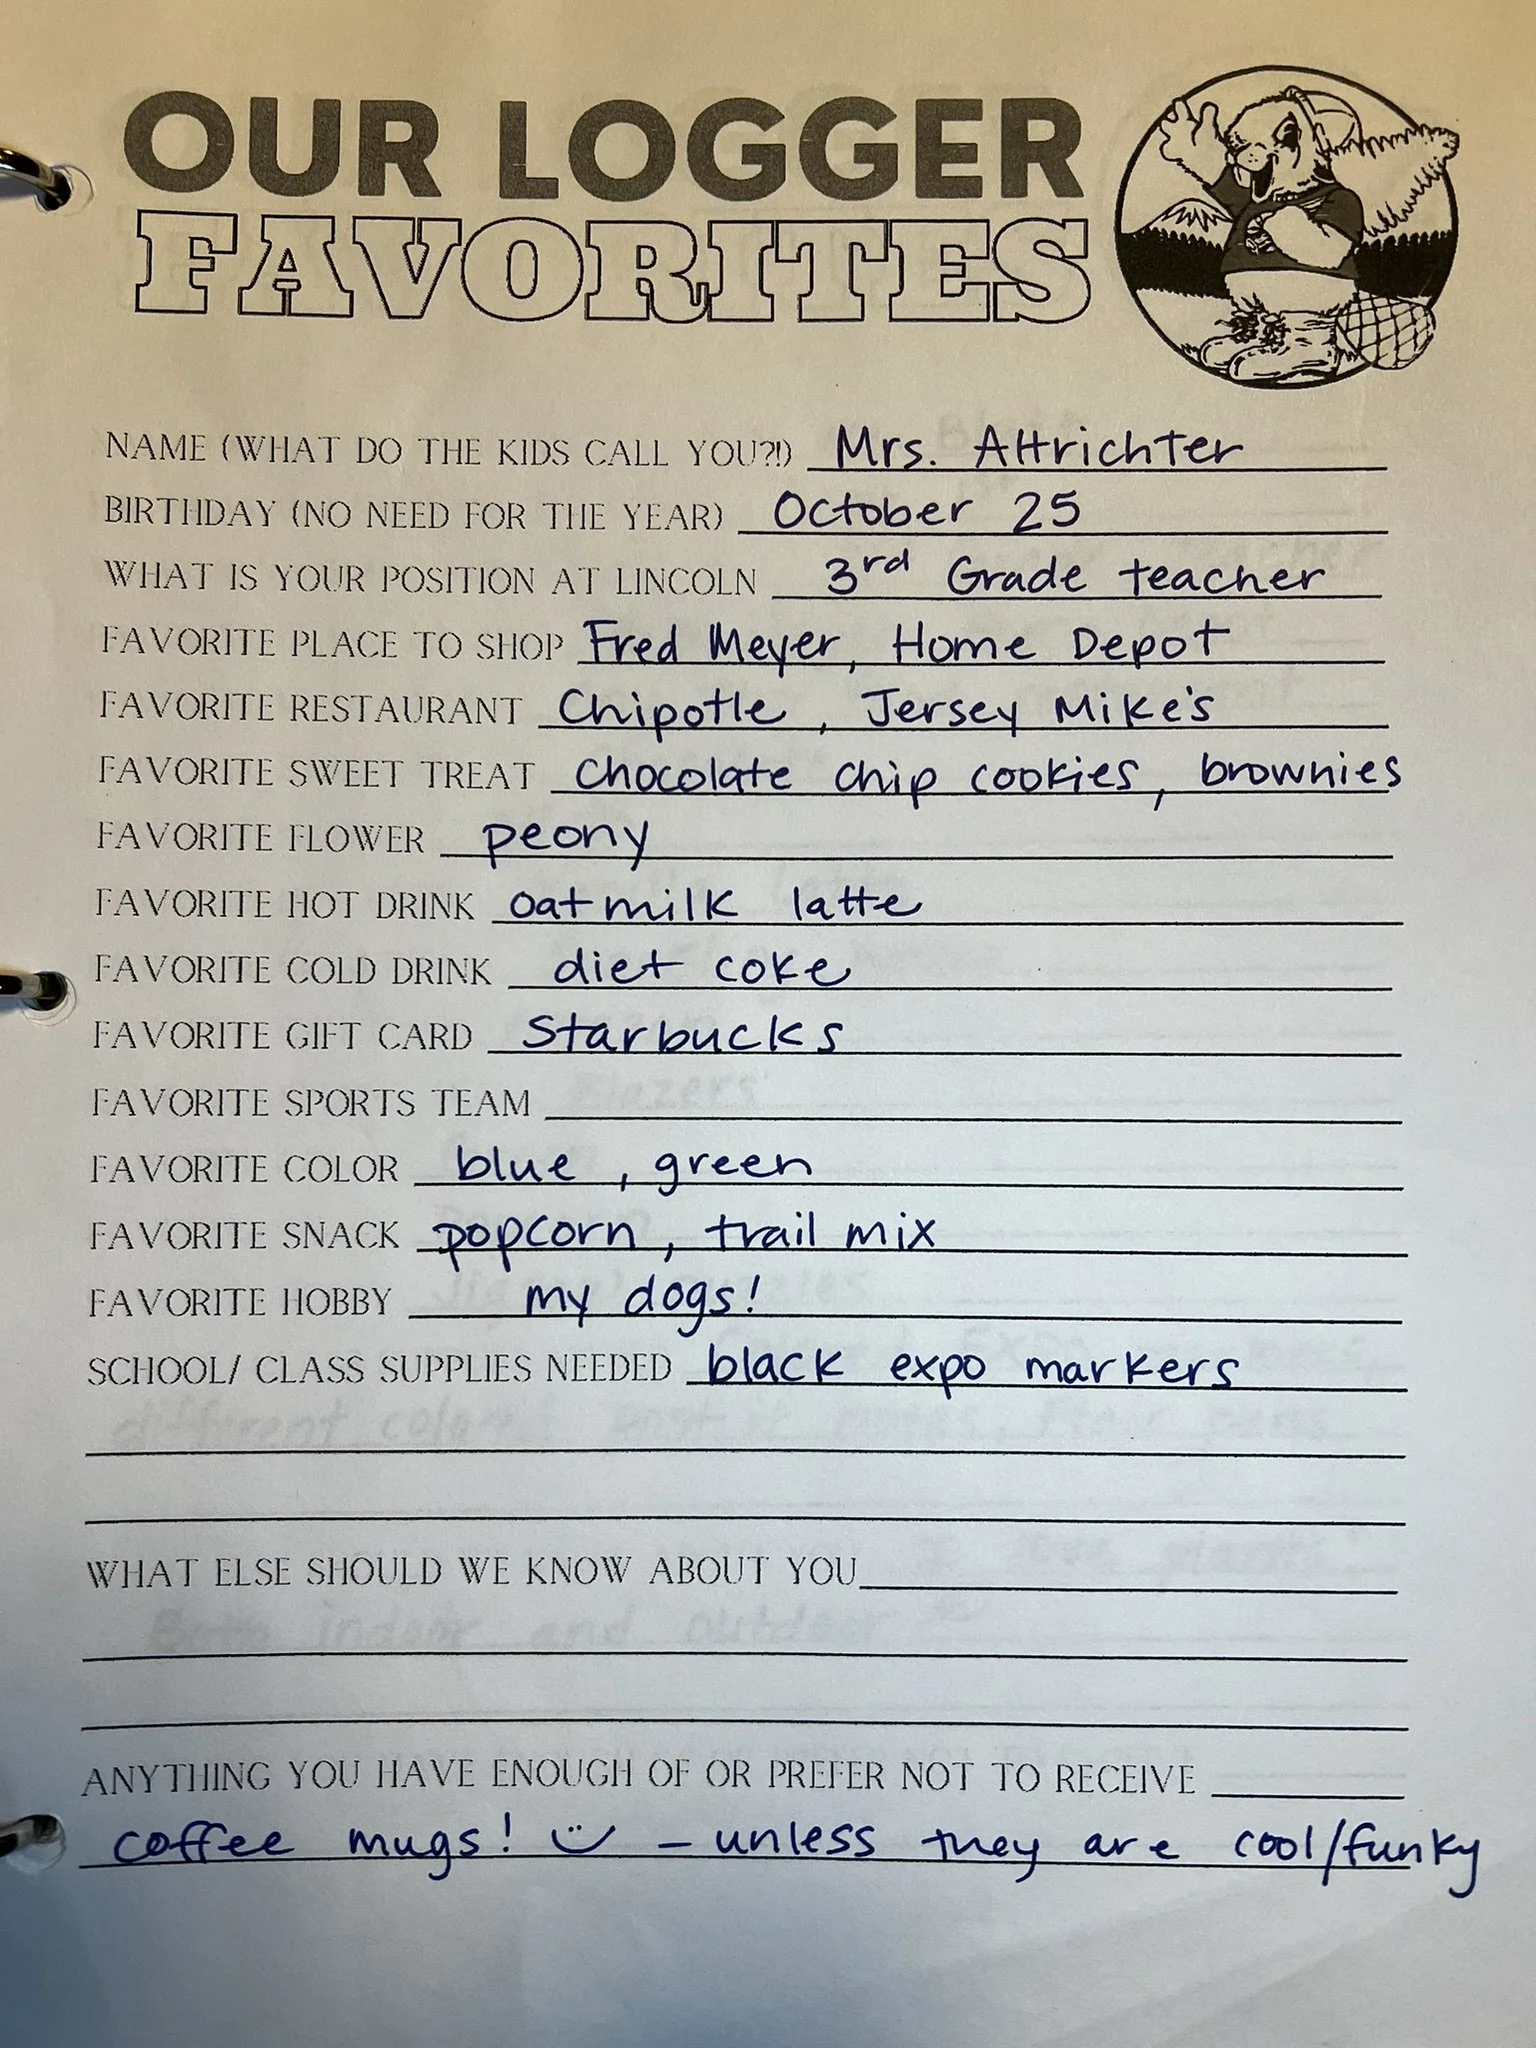 OUR LOGGER
FAVORITES
NAME (WHAT DO THE KIDS CALL YOU?!) Mrs. Altrichter
BIRTHDAY (NO NEED FOR THE YEAR) October 25
WHAT IS YOUR POSITION AT LINCOLN 3rd Grade teacher
FAVORITE PLACE TO SHOP Fred Meyer, Home Depot
FAVORITE RESTAURANT Chipotle, Jersey Mike's
FAVORITE SWEET TREAT Chocolate chip cookies, brownies
FAVORITE FLOWER peony
FAVORITE HOT DRINK oatmilk latte
FAVORITE COLD DRINK diet coke
FAVORITE GIFT CARD Starbucks
FAVORITE SPORTS TEAM
FAVORITE COLOR blue, green
FAVORITE SNACK popcorn, trail mix
FAVORITE HOBBY my dogs!
SCHOOL/ CLASS SUPPLIES NEEDED black expo markers
WHAT ELSE SHOULD WE KNOW ABOUT YOU
ANYTHING YOU HAVE ENOUGH OF OR PREFER NOT TO RECEIVE
coffee mugs! - unless they are cool/funky